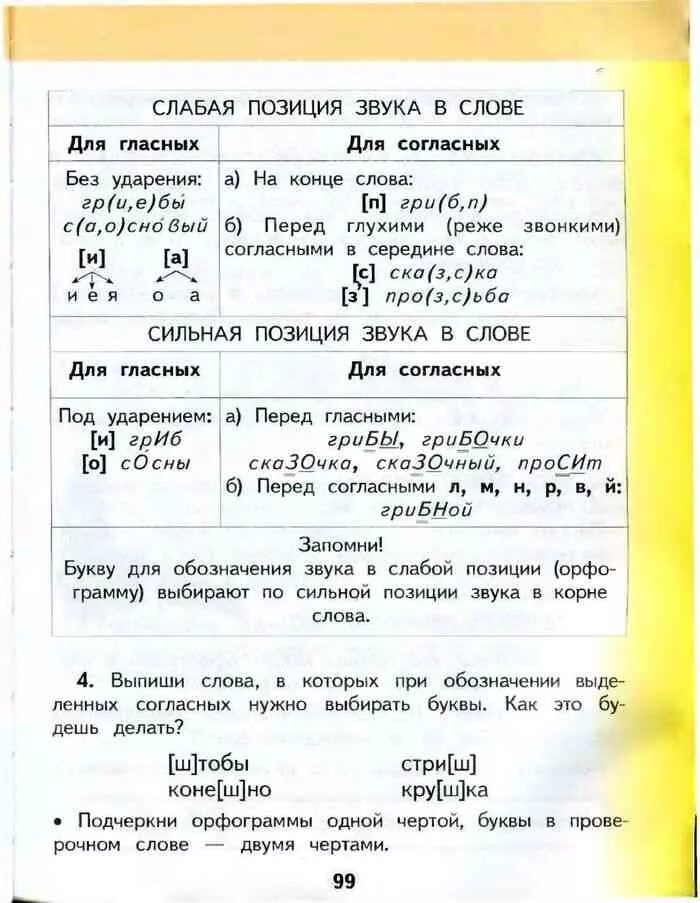 СЛАБАЯ ПОЗИЦИЯ ЗВУКА В СЛОВЕ
Для гласных
Для согласных
Без ударения:
гр(и,е)бы́
с(а,о)сно́вый
[и] [а]
и е я о а
а) На конце слова:
[п] гри(б,п)
б) Перед глухими (реже звонкими)
согласными в середине слова:
[с] ска(з,с)ка
[з'] про(з,с)ьба
СИЛЬНАЯ ПОЗИЦИЯ ЗВУКА В СЛОВЕ
Для гласных
Для согласных
Под ударением:
[и] грИб
[о] сО́сны
а) Перед гласными:
гриБЫ, гриБОчки
скаЗОчка, скаЗОчный, проСИт
б) Перед согласными л, м, н, р, в, й:
гриБНой
Запомни!
Букву для обозначения звука в слабой позиции (орфо-
грамму) выбирают по сильной позиции звука в корне
слова.
4. Выпиши слова, в которых при обозначении выде-
ленных согласных нужно выбирать буквы. Как это бу-
дешь делать?
[ш]тобы стри[ш]
коне[ш]но кру[ш]ка
• Подчеркни орфограммы одной чертой, буквы в прове-
рочном слове — двумя чертами.
99